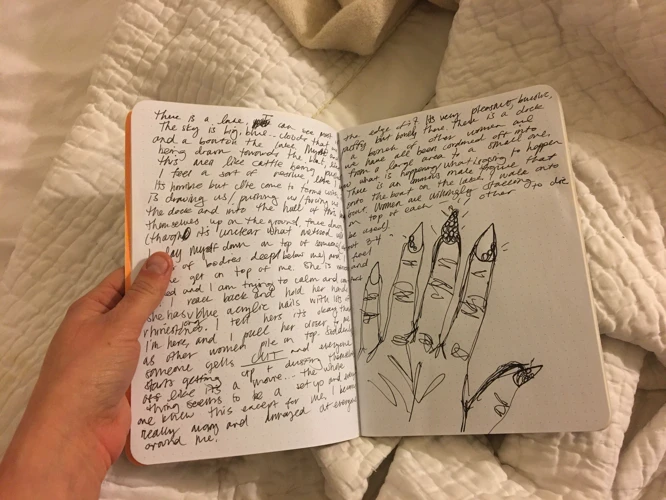 There is a lake, I can see most
The sky is big, blue.. clouds that
and a boat on the lake. Myself and
being drawn towards the boat, like
this area like cattle being
I feel a sort of passive, like I
its horrible but Ive come to terms with
is drawing us / pushing us / forcing us
the dock and into the hull of this
themselves up on the ground, three deep
(though it's unclear what method
I lay myself down on top of
of bodies deep below me) and
get on top of me. She is
and I am trying to calm and
I reach back and hold her hand
she has blue acrylic nails with lots of
rhinestones. I tell hers its okay that
I'm here, and I pull her closer to me
as other women pile on top. Suddenly
someone yells CUT and everyone
starts getting up + dusting themselves
off like its a movie... the whole
thing seems to be a set up and every
one knew this except for me, I become
really angry and enraged at everyone
around me.
the edge of it. Its very pleasant, bucolic,
pretty but lonely there. There is a dock
a bunch of other women and
we have all been confined off into
from a large area to a small one.
know what is happening/what is going to happen
There is an ominous male figure that
onto the boat on the lake, I walk onto
boat. Women are willingly stacking
on top of each other to die
be used).
about 3-4
feel
and